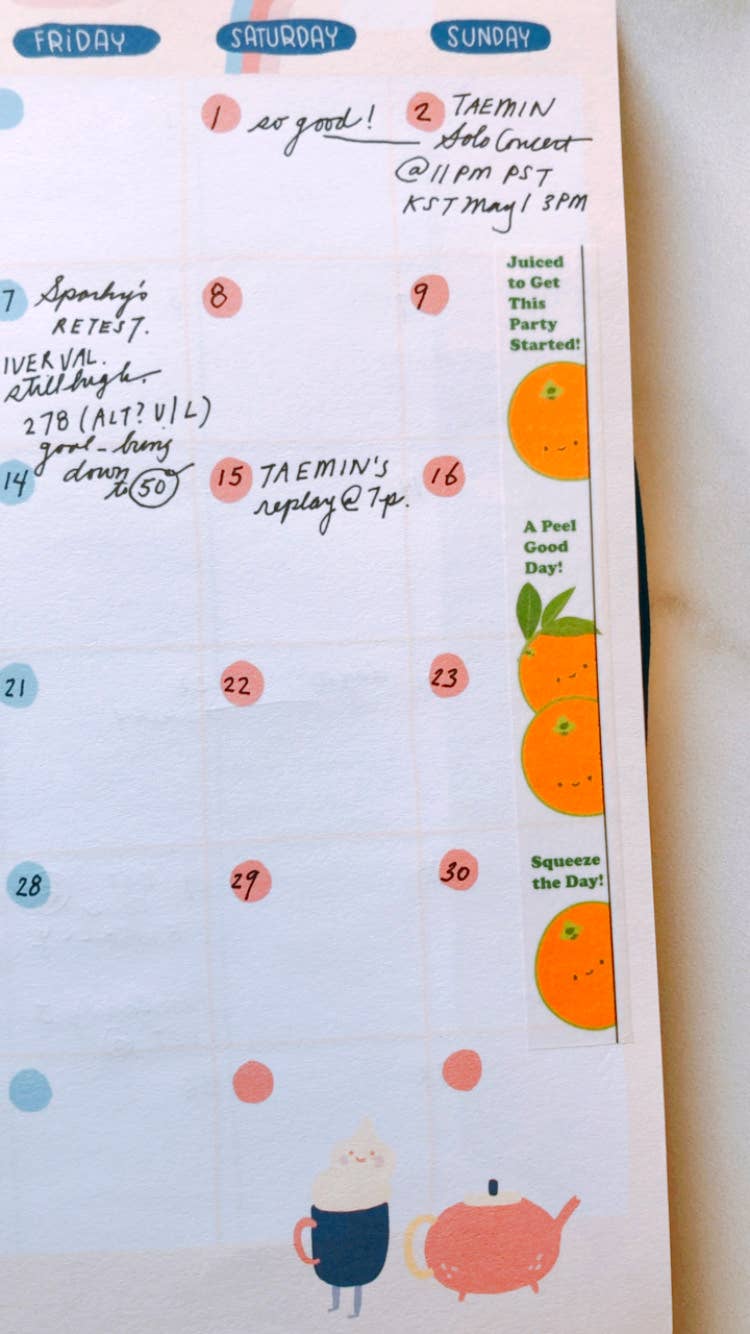 FRIDAY
SATURDAY
SUNDAY
1 so good!
2 TAEMIN
Solo Concert
@ 11 PM PST
KST May 1 3PM
7 Sparky's
RETEST.
IVER VAL.
still high.
278 (ALT? U/L)
goal - bring
down
to 50
8
9
Juiced
to Get
This
Party
Started!
14
15 TAEMIN'S
replay @ 7p.
16
A Peel
Good
Day!
21
22
23
28
29
30
Squeeze
the Day!